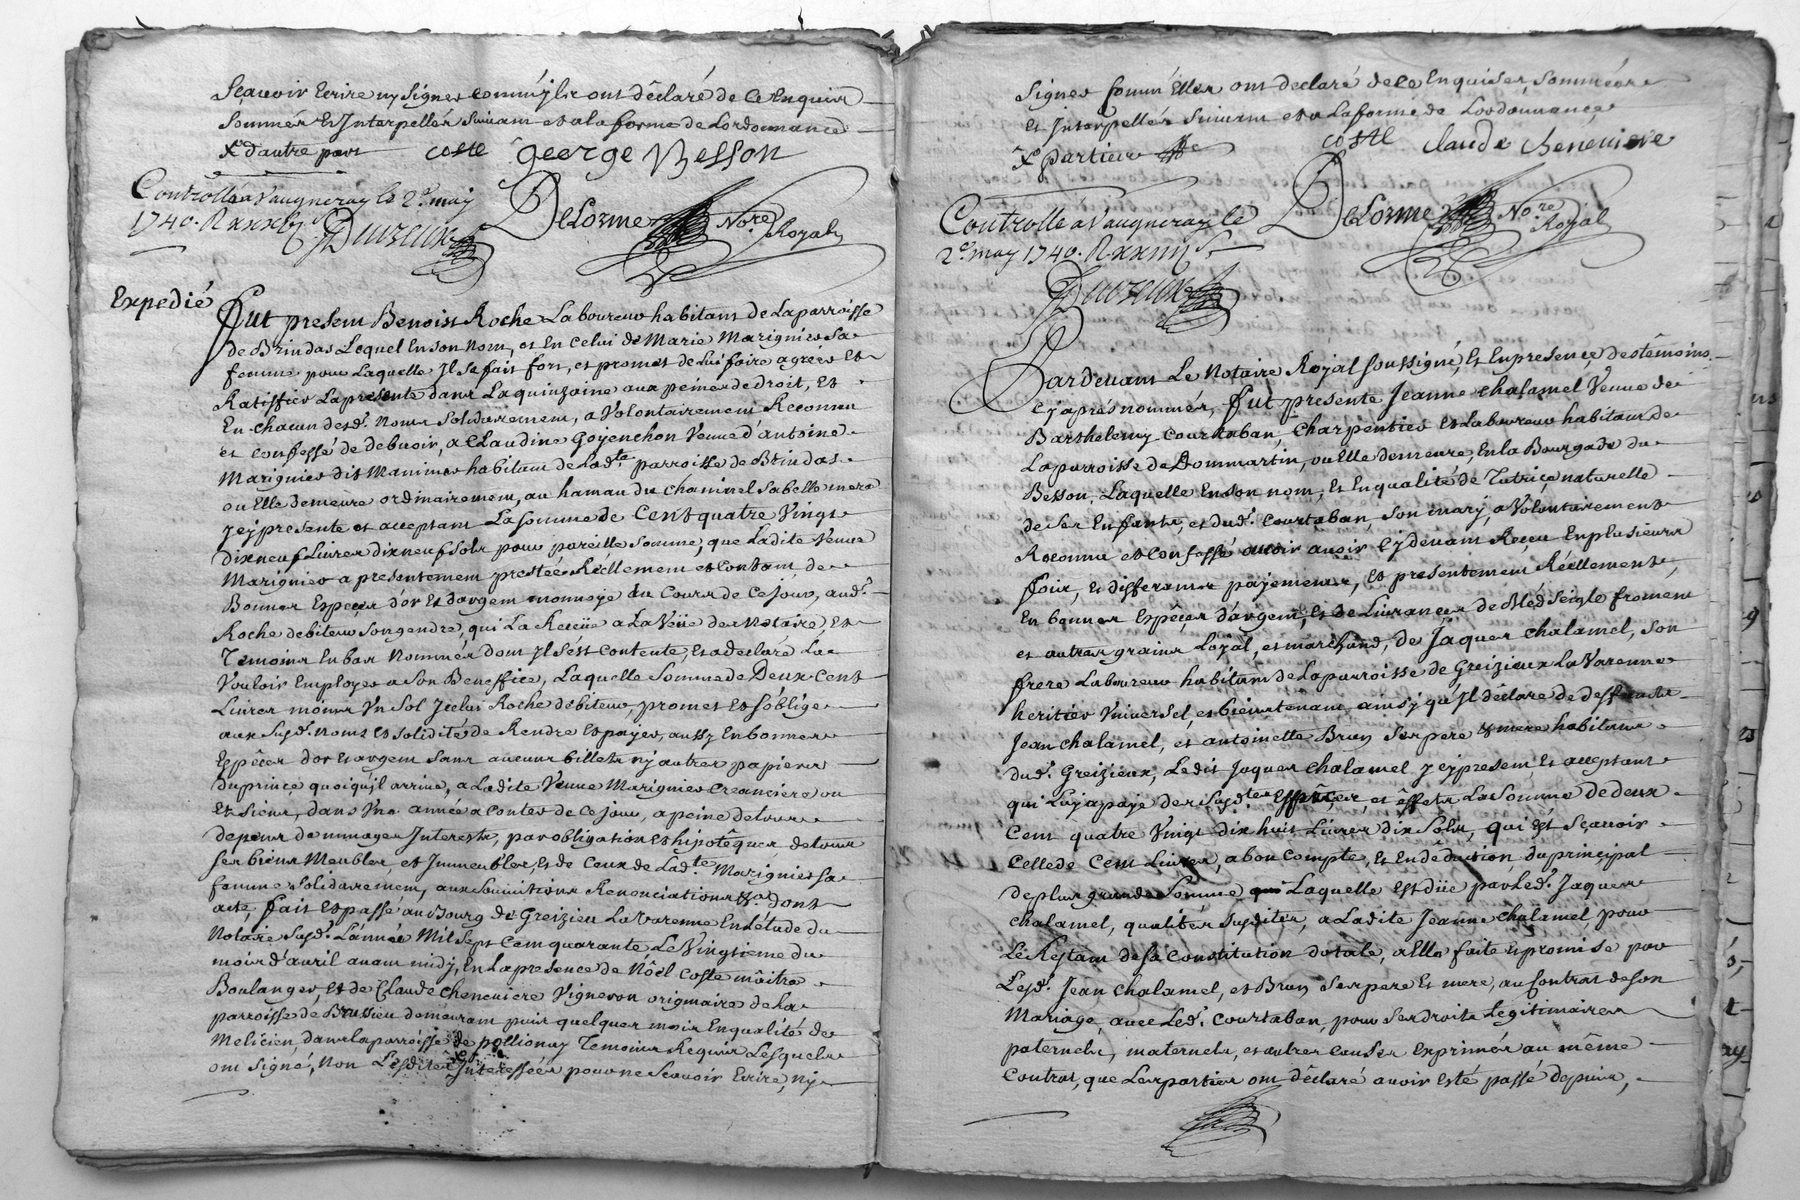 Sçauoir Ecrire ny Signer comm'ils ont déclaré de ce Enquis
Sommés Et Interpellés Suiuant et a la forme de Lordonnance
X.e d'autre part coste george Besson
Controllé a Vaugneray le 2.e may
1740. R xxxbj s
Duvzeux
DeLorme No.re Royal
Expedié
Fut present Benoist Roche Laboureur habitant de La parroisse
de Brindas Lequel En son nom, et En celui de Marie Marignier Sa
femme pour Laquelle Jl Se fait fort, et promet de Lui faire agréer Et
Ratiffier La presente dans La quinzaine aux peines de droit, Et
En chacun desd. noms Solidairement, a Volontairement Reconnu
et confessé de debuoir, a Claudine Goyenchon Veuue d'antoine
Marignier dit Maniner habitant de Lad.te parroisse de Brindas
ou Elle demeure ordinairement, au hamau du Chaninel Sa belle mere
Jcy presente et acceptant La Somme de Cent quatre Vingt
dixneuf Liures dixneuf Sols pour pareille Somme, que Ladite Veuue
Marignier a presentement prestée Réellement et contant de
Bonnes Especes d'or Et d'argent monnoye du Cours de Ce jour, aud.
Roche debiteur Son gendre, qui La Reçüe a La Veüe des Notaire Et
Temoins En bas Nommés dont Jl S'est Contenté, Et a declaré La
Vouloir Employer a Son Beneffice, Laquelle Somme de Deux Cent
Liures moins Vn Sol Jcelui Roche debiteur, promet Et S'oblige
aux Susd. noms et Solidité de Rendre Et payer, aussy En bonnes
Espêces d'or Et argent Sans aucuns billets n'y autres papiers
du prince quoiqu'il arriue, a Ladite Veuue Marignier Creanciere ou
Es Siens, dans Vne année a Conter de Ce jour, a peine de tous
depens dommages Interests, par obligation Et hipotêques de tous
Ses biens Meubles, et Jmmeubles, Et de Ceux de Lad.te Marignier Sa
femme Solidairement, aux Soumitions Renonciations &.a dont
acte, fait Et passé au Bourg de Greizieu La Varenne En L'étude du
Notaire Susd. L'année Mil Sept Cent quarante Le Vingtieme du
mois d'auril auant midy, En La presence de Nôel Coste mâitre
Boulanger, Et de Claude Cheneuiere Vigneron originaire de La
parroisse de Brussieu demeurant puis quelques mois En qualité de
Melicien, dans La parroisse de pollionay Temoins Requis Lesquels
ont Signé, Non Lesdites Interessées pour ne Scauoir Ecrire, Ny
Signer Comm'Elles ont declaré de Ce Enquises, Sommées
Et Interpellés Suiuant et a La forme de Lordonnance
X.e parties coste Claude Cheneuiere
Controllé a Vaugneray le
2.e may 1740. R xxiiij s
Duvzeux
DeLorme No.re Royal
Pardeuant Le Notaire Royal Soussigné, Et En presence des têmoins
Cy aprés nommés, fut presente Jeanne Chalamel Veuue de
Barthelemy Courtaban, Charpentier Et Laboureur habitant de
La parroisse de Dommartin, ou Elle demeure, En la Bourgade du
Besson, Laquelle En Son nom, Et En qualité de Tutrice naturelle
de Ses Enfants, et dud. Courtaban Son mary, a Volontairement
Reconnu et Confessé auoir Cy deuant Reçeu En plusieurs
fois, Et differants payements, Et presentement Réellement,
En bonnes Espêces d'argent, Et de Liurances de Bled Seigle froment
et autres grains Loyal, et marchand, de Jaques Chalamel, Son
frere Laboureur habitant de La parroisse de Greizieux La Varenne
heritier Vniuersel, et biens tenant, ainsy qu'Jl déclare de deffunts
Jean Chalamel, et antoinette Brun Ses pere & mere habitans
dud. Greizieux, Ledit Jaques Chalamel Jcy present, Et acceptant
qui Luy a payé des Susd.tes Espêces, et effets La Somme de deux
Cent quatre Vingt dix huit Liures dix Sols, qui Est Sçauoir
Celle de Cent Liures, a bon Compte, Et En dêduction, du principal
de plus grande Somme Laquelle Est düe par Led. Jaques
Chalamel, qualités Susdites, a Ladite Jeanne Chalamel, pour
Le Restant de Sa Constitution dotale, a Elle faite Et promise par
Lesd. Jean Chalamel, et Brun Ses pere Et mere, au Contrat de Son
Mariage, auec Led. Courtaban, pour Ses droits Legitimaires
paternels, maternels, et autres Causes Exprimés au même
Contrat, que Les parties ont dêclaré auoir Esté passé depuis,